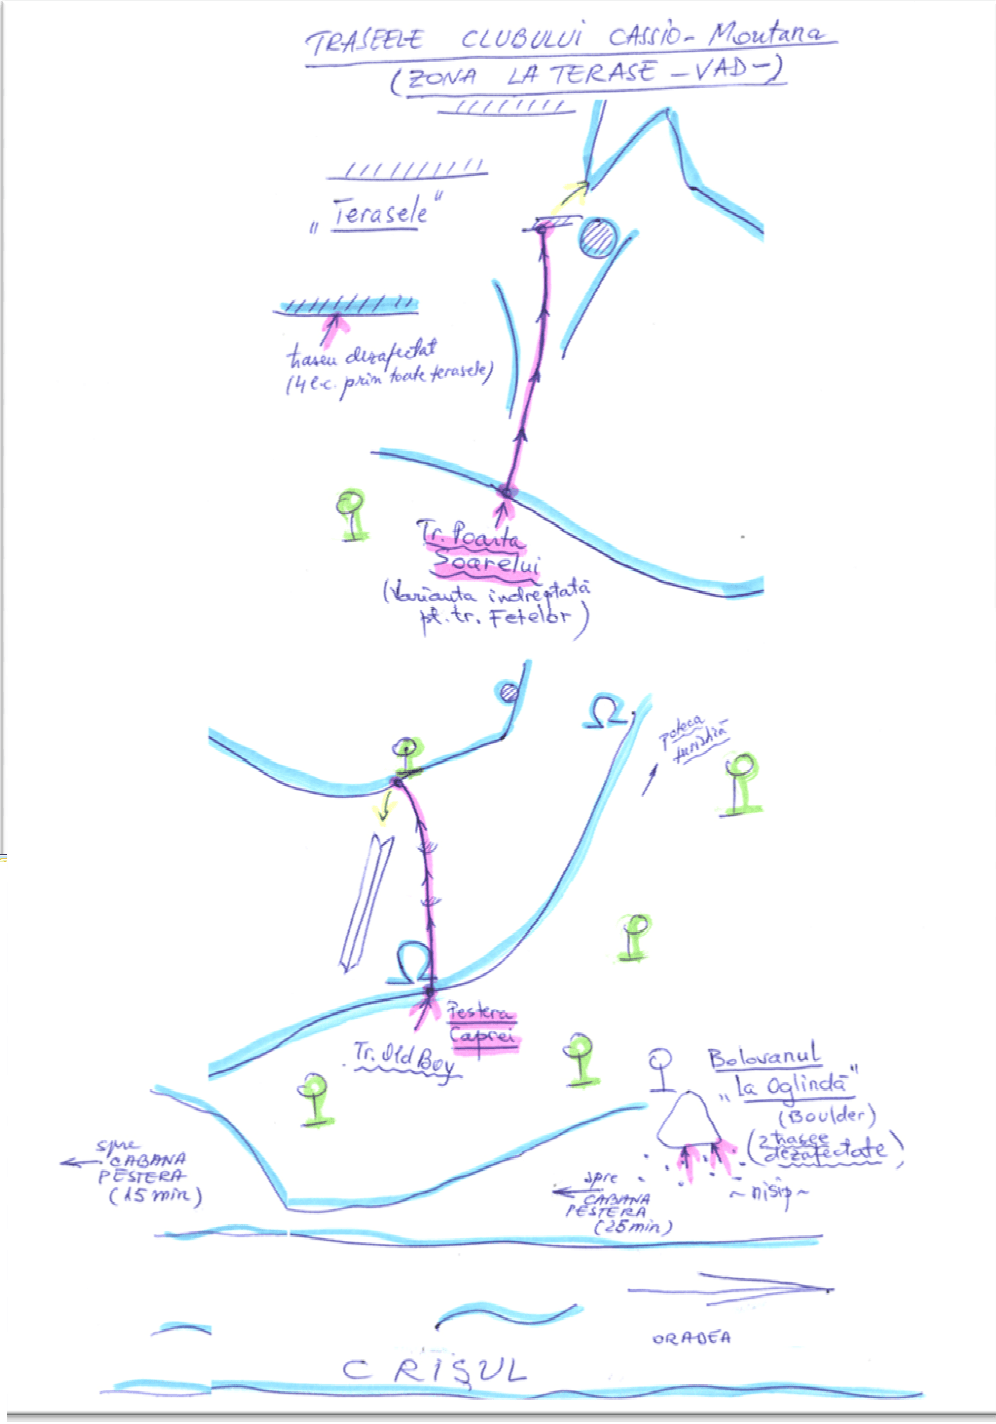 TRASEELE CLUBULUI CASSIO-Montana
(ZONA LA TERASE -VAD-)
„Terasele"
traseu dezafectat
(4 l.c. prin toate terasele)
Tr. Poarta
Soarelui
(Varianta indreptată
pt. tr. Fetelor)
poteca
turistică
Pestera
Caprei
Tr. Old Boy
Bolovanul
„La Oglindă"
(Boulder)
(2 trasee
dezafectate)
~nisip~
spre
CABANA
PESTERA
(15 min)
spre
CABANA
PESTERA
(25 min)
ORADEA
CRIŞUL